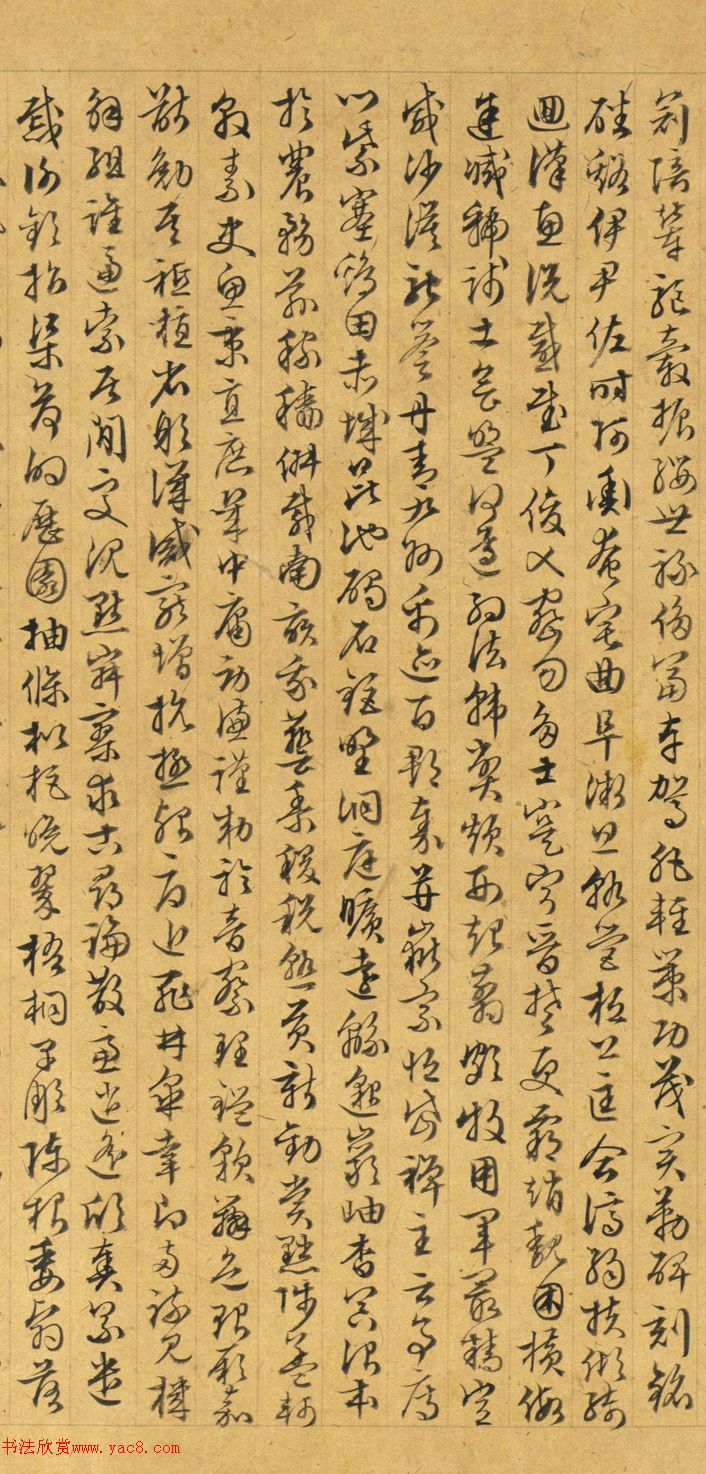 冠陪輦驅轂振纓世祿侈富車駕肥輕策功茂實勒碑刻銘
磻溪伊尹佐時阿衡奄宅曲阜微旦孰營桓公匡合濟弱扶傾綺
迴漢惠說感武丁俊乂密勿多士寔寧晉楚更霸趙魏困橫假
途滅虢踐土會盟何遵約法韓弊煩刑起翦頗牧用軍最精宣
威沙漠馳譽丹青九州禹跡百郡秦并嶽宗恒岱禪主云亭雁
門紫塞雞田赤城昆池碣石鉅野洞庭曠遠綿邈巖岫杳冥治本
於農務茲稼穡俶載南畝我藝黍稷稅熟貢新勸賞黜陟孟軻
敦素史魚秉直庶幾中庸勞謙謹敕聆音察理鑑貌辨色貽厥嘉
猷勉其祗植省躬譏誡寵增抗極殆辱近恥林皋幸即兩疏見機
解組誰逼索居閒處沉默寂寥求古尋論散慮逍遙欣奏累遣
慼謝歡招渠荷的歷園抽條枇杷晚翠梧桐早彫陳根委翳落
书法欣赏www.yac8.com